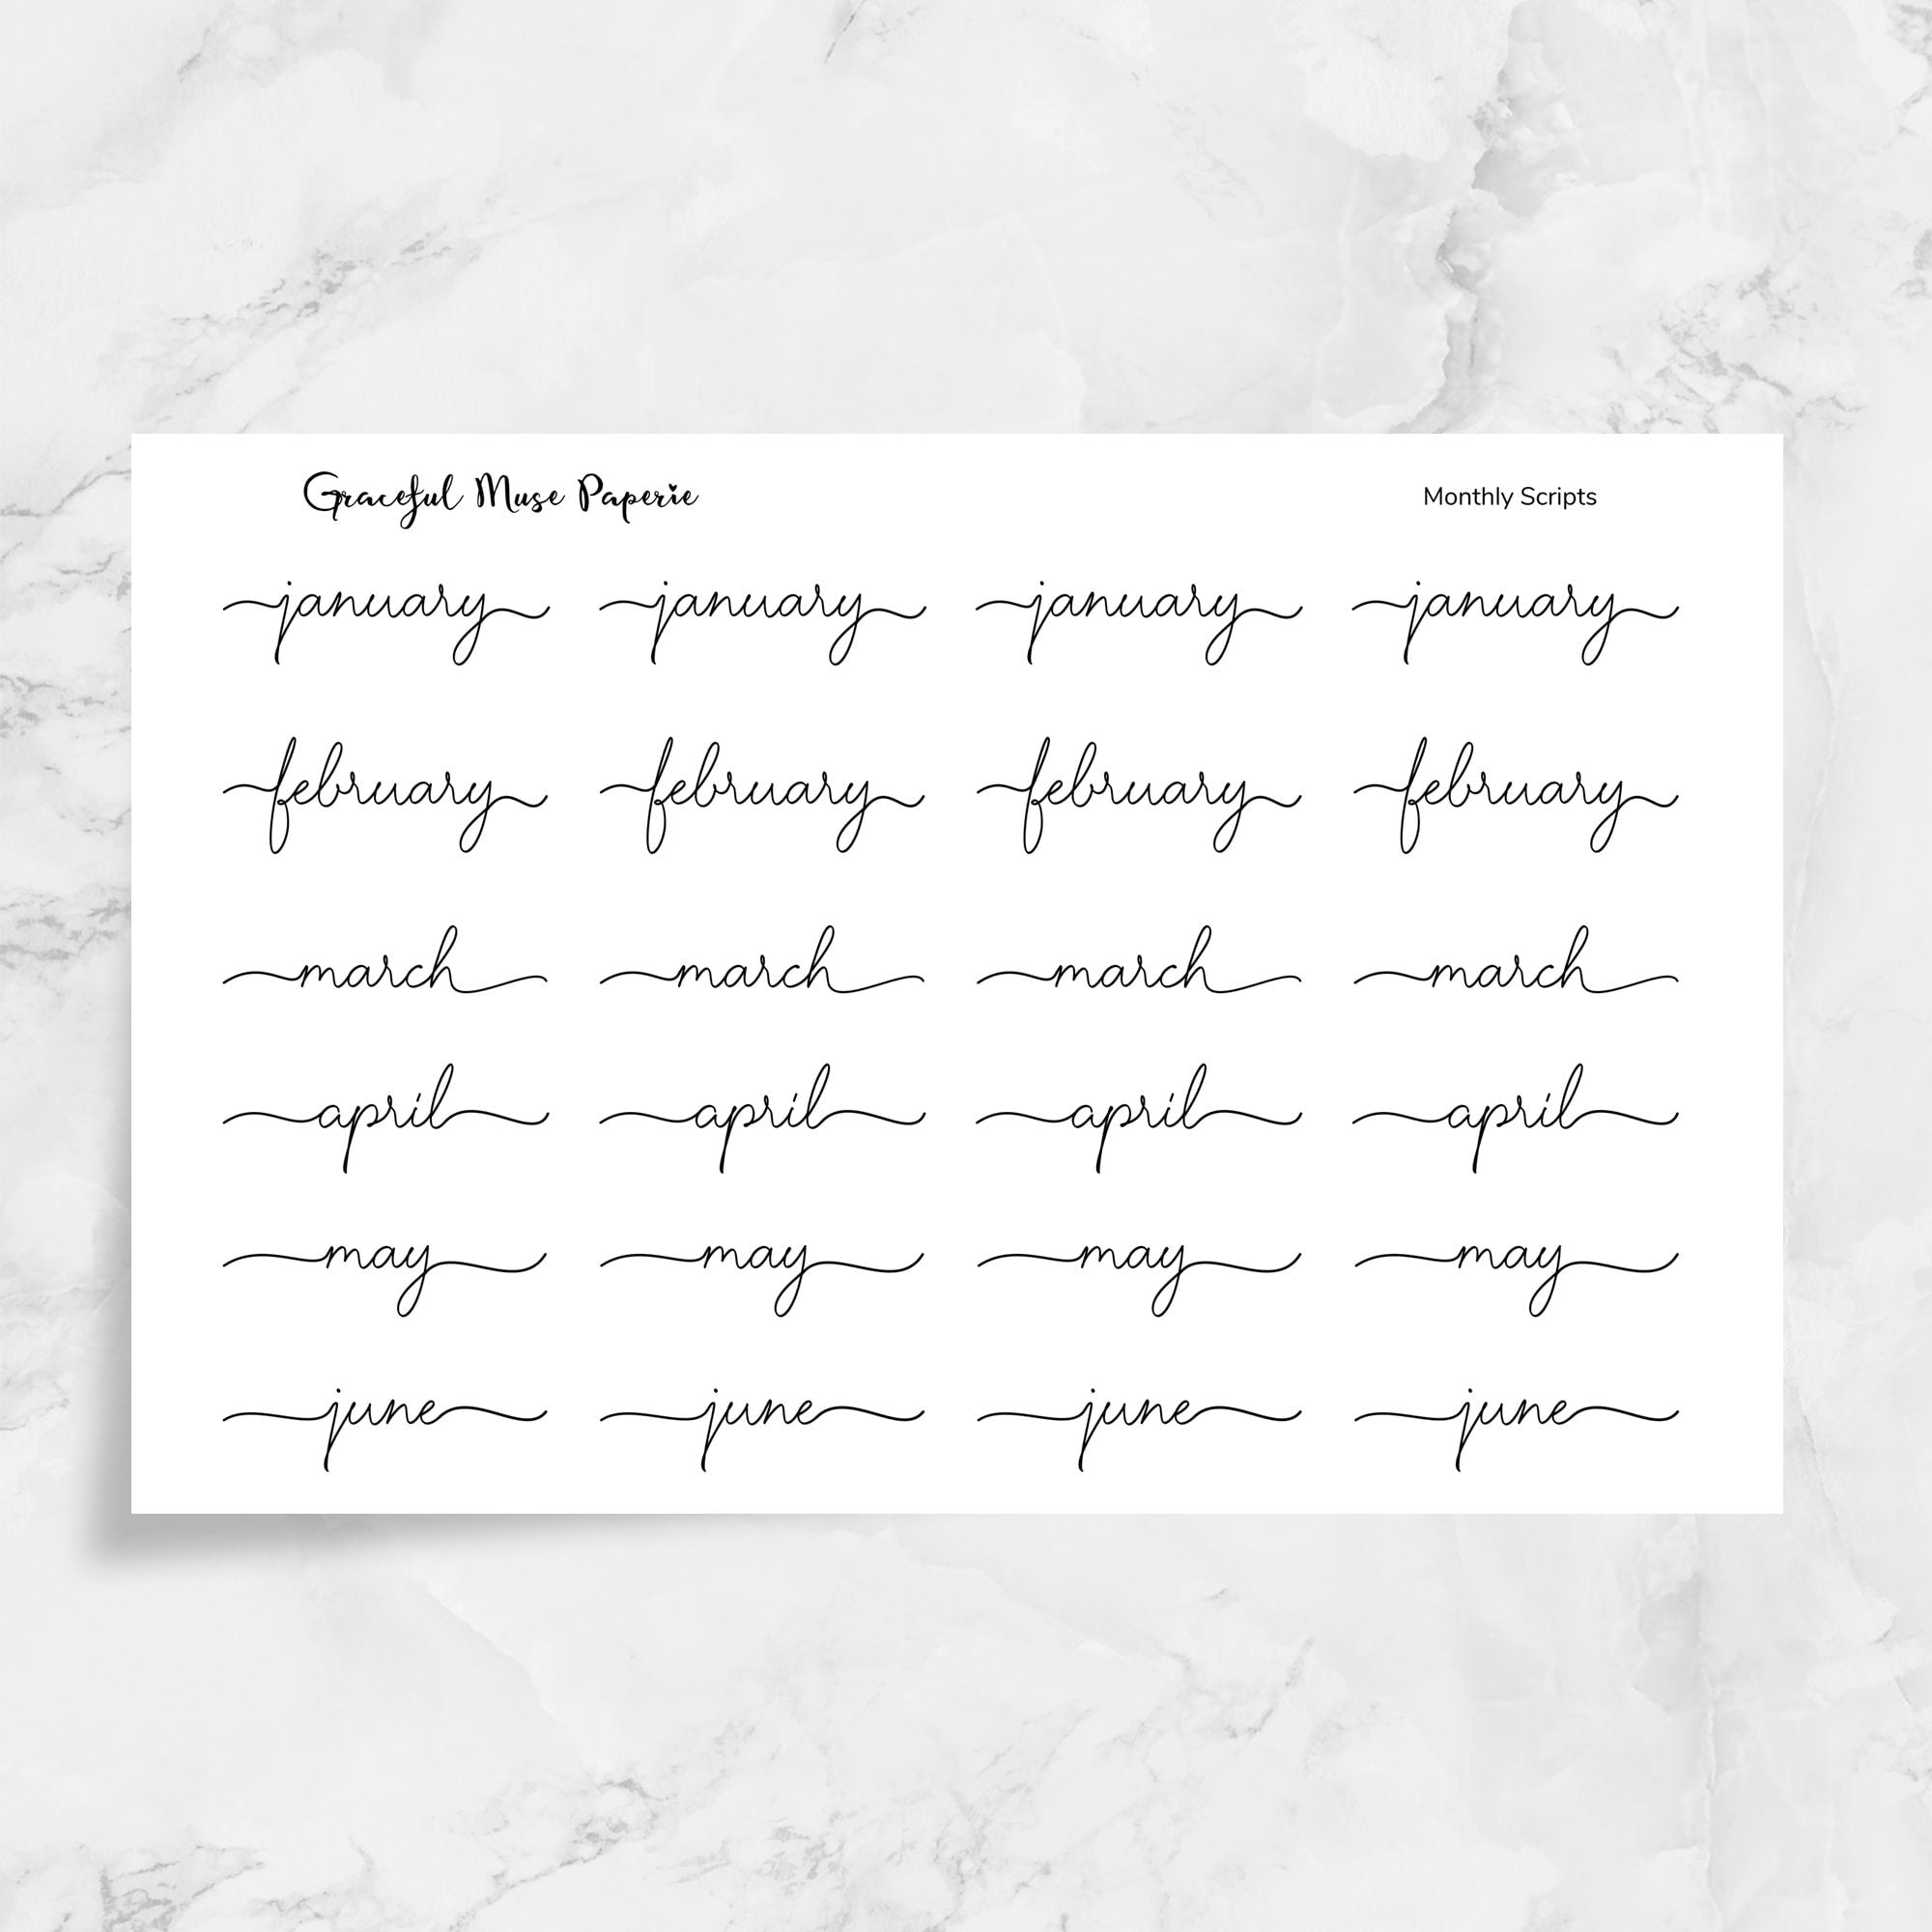 Graceful Muse Paperie Monthly Scripts
january january january january
february february february february
march march march march
april april april april
may may may may
june june june june